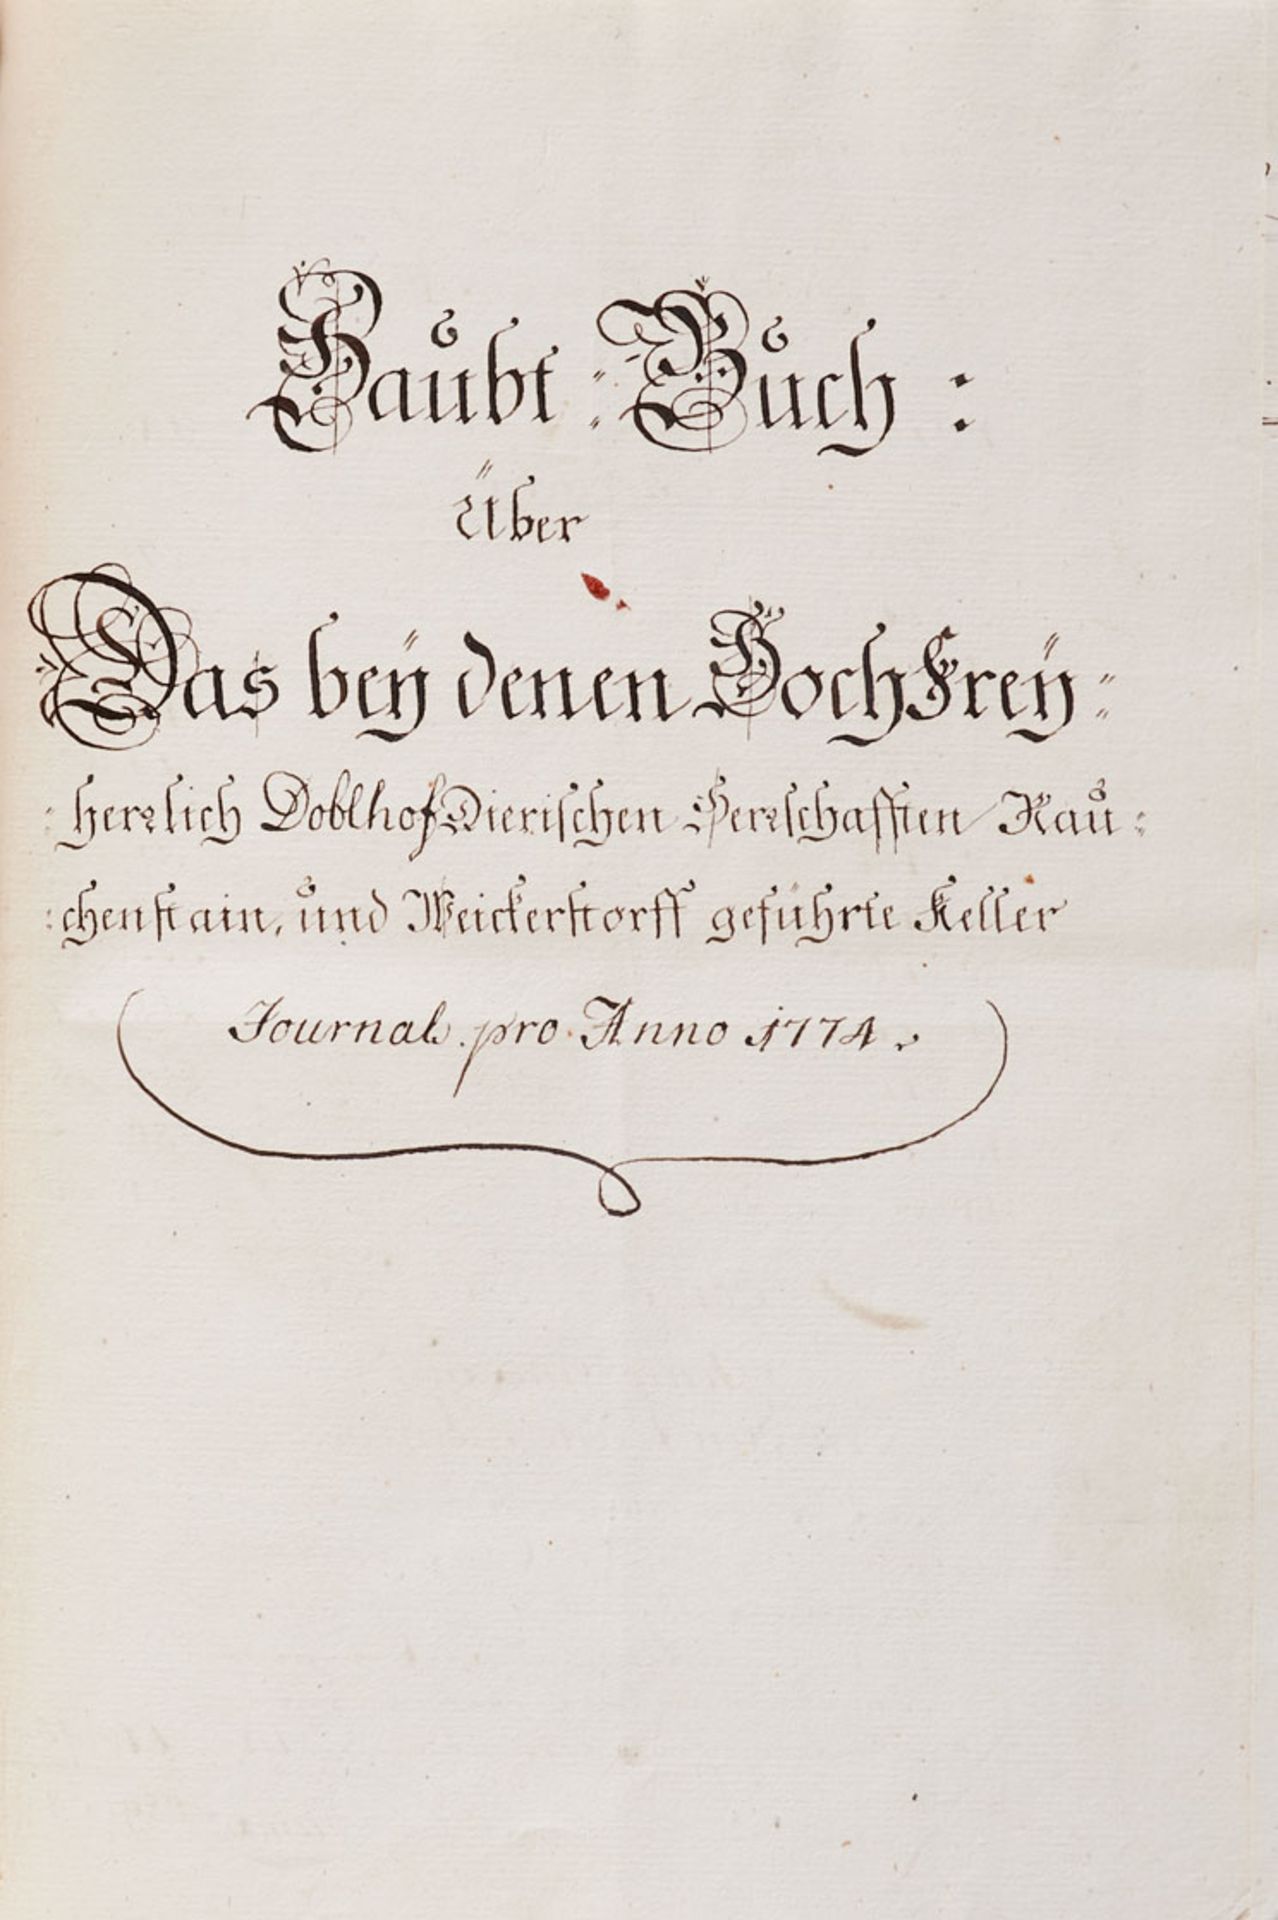 Haubt = Buch :
Über
Das bey denen HochFrey=
herrlich DoblhofDierischen Herrschafften Rau:
:chenstain, und Weickerstorff geführte Keller
Journal pro Anno 1774.